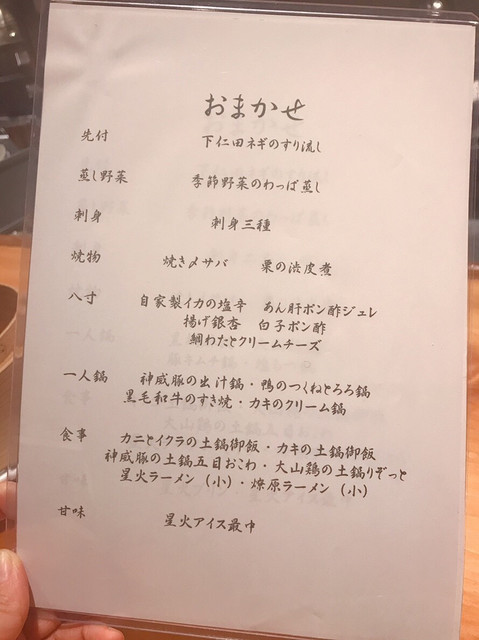 おまかせ
先付 下仁田ネギのすり流し
蒸し野菜 季節野菜のわっぱ蒸し
刺身 刺身三種
焼物 焼き〆サバ 栗の渋皮煮
八寸 自家製イカの塩辛 あん肝ポン酢ジュレ
揚げ銀杏 白子ポン酢
鯛わたとクリームチーズ
一人鍋 神威豚の出汁鍋・鴨のつくねとろろ鍋
黒毛和牛のすき焼・カキのクリーム鍋
食事 カニとイクラの土鍋御飯・カキの土鍋御飯
神威豚の土鍋五目おこわ・大山鶏の土鍋りぞっと
星火ラーメン（小）・燎原ラーメン（小）
甘味 星火アイス最中